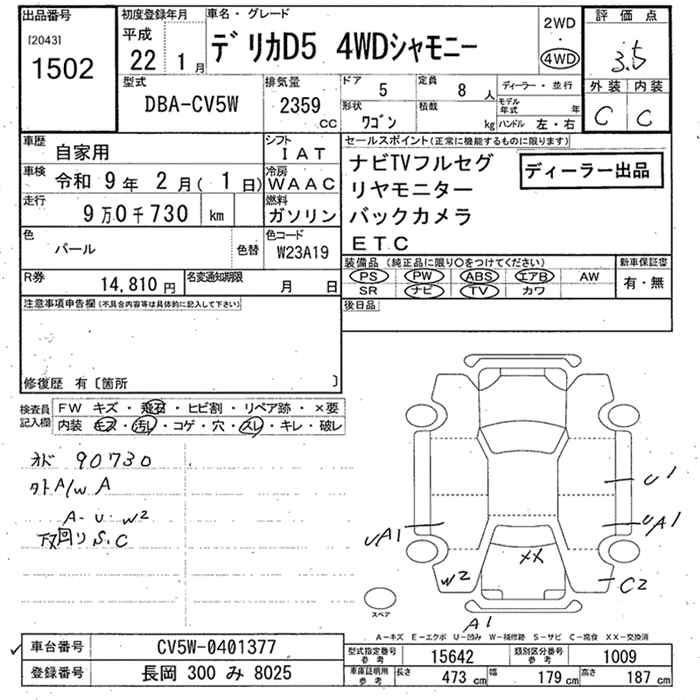 出品番号
[2043]
1502
初度登録年月
平成
22 1月
車名・グレード
デリカD5 4WDシャモニー
2WD
・
4WD
評価点
3.5
外装 内装
C C
型式
DBA-CV5W
排気量
2359
CC
ドア
5
定員
8 人
形状
ワゴン
積載
kg
ディーラー・並行
モデル年式 年
ハンドル 左・右
車歴
自家用
シフト
IAT
車検
令和 9年 2月( 1日)
冷房
WAAC
走行
9万0千730 km
燃料
ガソリン
色
パール
色替
色コード
W23A19
R券
14,810円
名変通知期限
月 日
セールスポイント(正常に機能するものに限ります)
ナビTVフルセグ
リヤモニター
バックカメラ
ETC
ディーラー出品
装備品 (純正品に限り○をつけてください)
PS PW ABS エアB AW
SR ナビ TV カワ
新車保証書
有・無
後日品
注意事項申告欄(不具合内容等は具体的に記入して下さい)
修復歴 有〔箇所 〕
検査員記入欄
FW キズ・飛石・ヒビ割・リペア跡・×要
内装 キズ・汚レ・コゲ・穴・スレ・キレ・破レ
90730
A/W A
A-U W2
下回りS.C
U1
UA1
UA1
XX
W2
C2
A1
スペア
A-キズ E-エクボ U-凹み W-補修跡 S-サビ C-腐食 XX-交換済
車台番号 CV5W-0401377
登録番号 長岡 300 み 8025
型式指定番号 参考 15642
類別区分番号 参考 1009
車庫証明用 参考 長さ 473 cm 幅 179 cm 高さ 187 cm